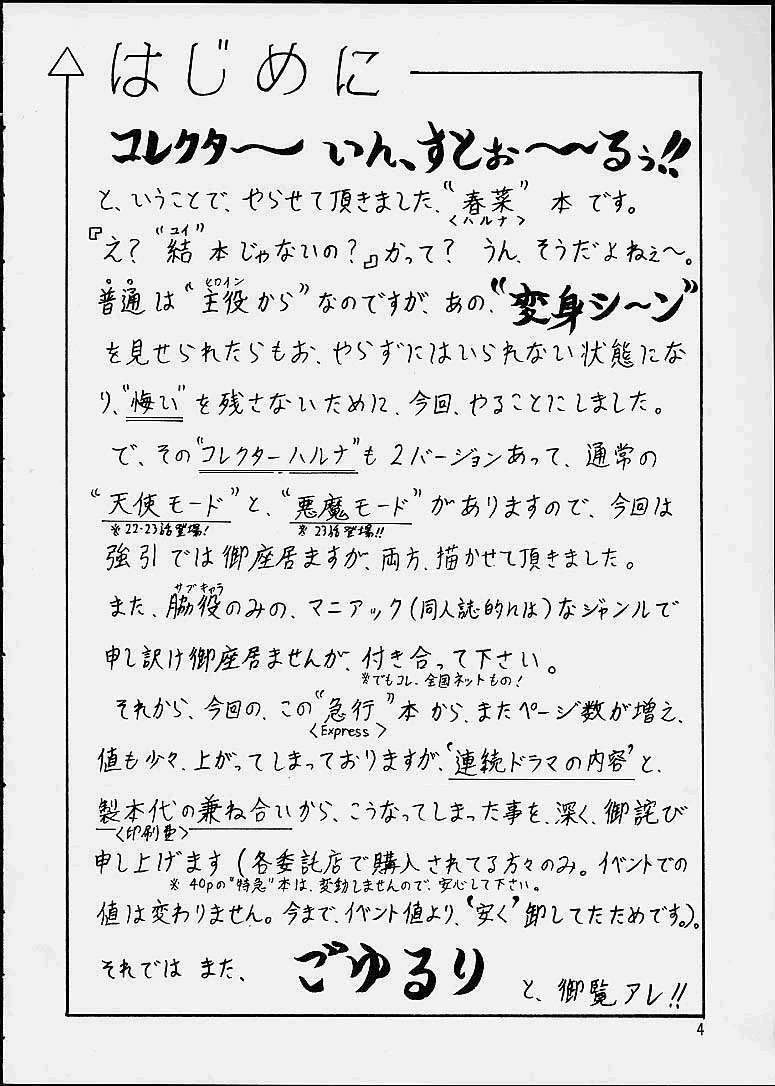 はじめに
コレクター〜 いん、すとぉ〜〜るぅ!!
と、いうことで、やらせて頂きました、“春菜” 本です。
<ハルナ>
ユイ
『え？“結”本じゃないの？』かって？ うん、そうだよねぇ〜。
ヒロイン
普通は“主役から”なのですが、あの、“変身シ〜ン”
を見せられたらもお、やらずにはいられない状態にな
り、“悔い”を残さないために、今回、やることにしました。
で、その“コレクターハルナ”も2バージョンあって、通常の
“天使モード”と、“悪魔モード”がありますので、今回は
※22・23話登場! ※23話登場!!
強引では御座居ますが、両方、描かせて頂きました。
サブキャラ
また、脇役のみの、マニアック(同人誌的には)なジャンルで
申し訳け御座居ませんが、付き合って下さい。
※でもコレ、全国ネットもの!
それから、今回の、この“急行”本から、またページ数が増え、
<Express>
値も少々、上がってしまっておりますが、‘連続ドラマの内容’と、
製本代の兼ね合いから、こうなってしまった事を、深く、御詫び
<印刷費>
申し上げます(各委託店で購入されてる方々のみ。イベントでの
※ 40pの“特急”本は、変動しませんので、安心して下さい。
値は変わりません。今まで、イベント値より、‘安く’卸してたためです。)。
それでは また、 ごゆるり と、御覧アレ!!
4